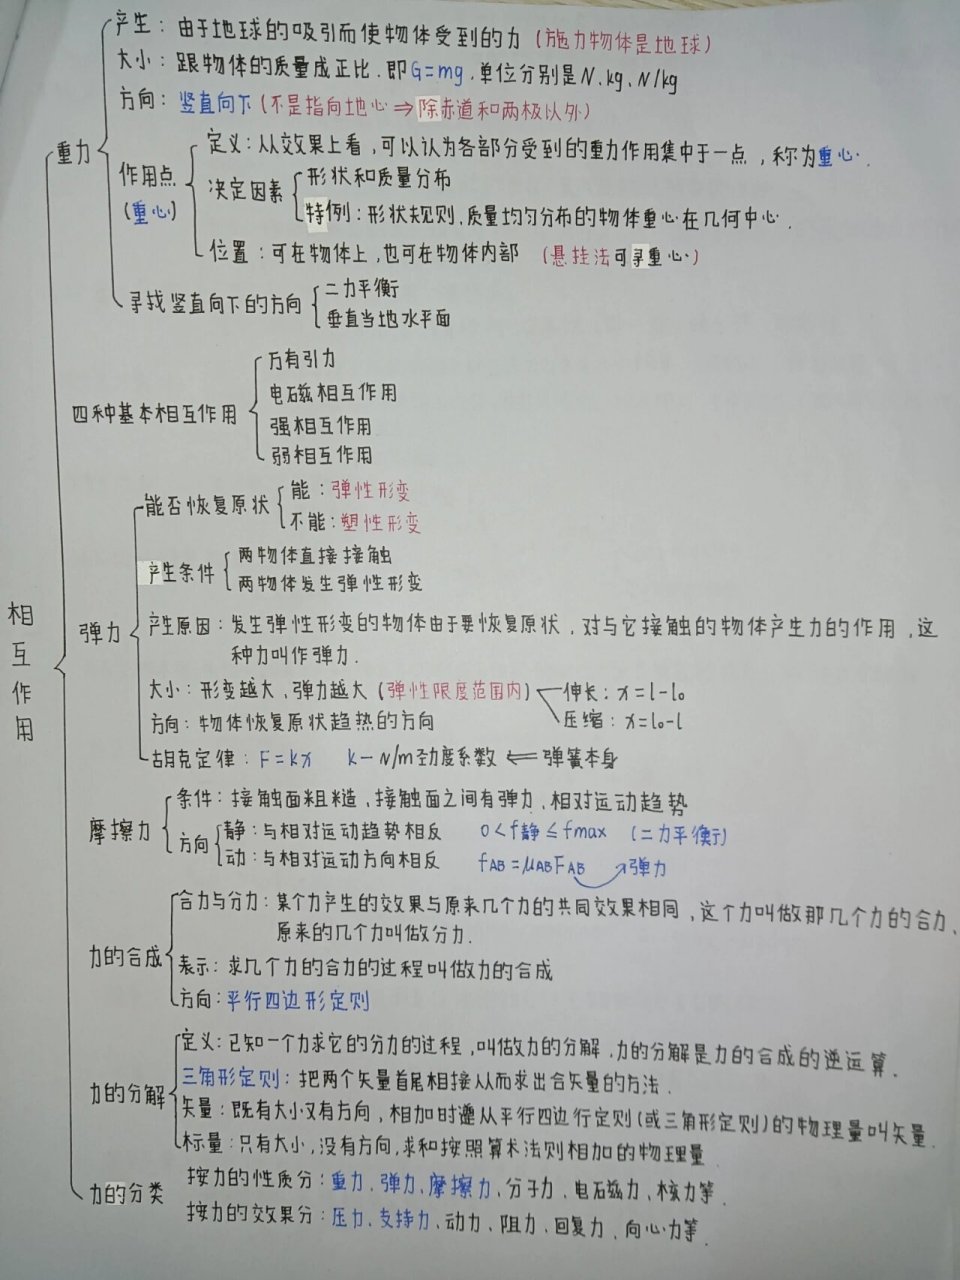 相互作用
重力
产生：由于地球的吸引而使物体受到的力（施力物体是地球）
大小：跟物体的质量成正比．即G=mg．单位分别是N、kg、N/kg
方向：竖直向下（不是指向地心⇒除赤道和两极以外）
作用点（重心）
定义：从效果上看，可以认为各部分受到的重力作用集中于一点，称为重心．
决定因素
形状和质量分布
特例：形状规则、质量均匀分布的物体重心在几何中心．
位置：可在物体上，也可在物体内部（悬挂法可寻重心）
寻找竖直向下的方向
二力平衡
垂直当地水平面
四种基本相互作用
万有引力
电磁相互作用
强相互作用
弱相互作用
弹力
能否恢复原状
能：弹性形变
不能：塑性形变
产生条件
两物体直接接触
两物体发生弹性形变
产生原因：发生弹性形变的物体由于要恢复原状，对与它接触的物体产生力的作用，这
种力叫作弹力．
大小：形变越大，弹力越大（弹性限度范围内）
伸长：x=l-l₀
压缩：x=l₀-l
方向：物体恢复原状趋热的方向
胡克定律：F=kx　k—N/m劲度系数⇐弹簧本身
摩擦力
条件：接触面粗糙、接触面之间有弹力、相对运动趋势
方向
静：与相对运动趋势相反　0<f静≤fmax　（二力平衡）
动：与相对运动方向相反　fAB=μABFAB→弹力
力的合成
合力与分力：某个力产生的效果与原来几个力的共同效果相同，这个力叫做那几个力的合力、
原来的几个力叫做分力．
表示：求几个力的合力的过程叫做力的合成
方向：平行四边形定则
力的分解
定义：已知一个力求它的分力的过程，叫做力的分解．力的分解是力的合成的逆运算．
三角形定则：把两个矢量首尾相接从而求出合矢量的方法．
矢量：既有大小又有方向，相加时遵从平行四边行定则（或三角形定则）的物理量叫矢量．
标量：只有大小，没有方向，求和按照算术法则相加的物理量
力的分类
按力的性质分：重力、弹力、摩擦力、分子力、电磁力、核力等．
按力的效果分：压力、支持力、动力、阻力、回复力、向心力等．